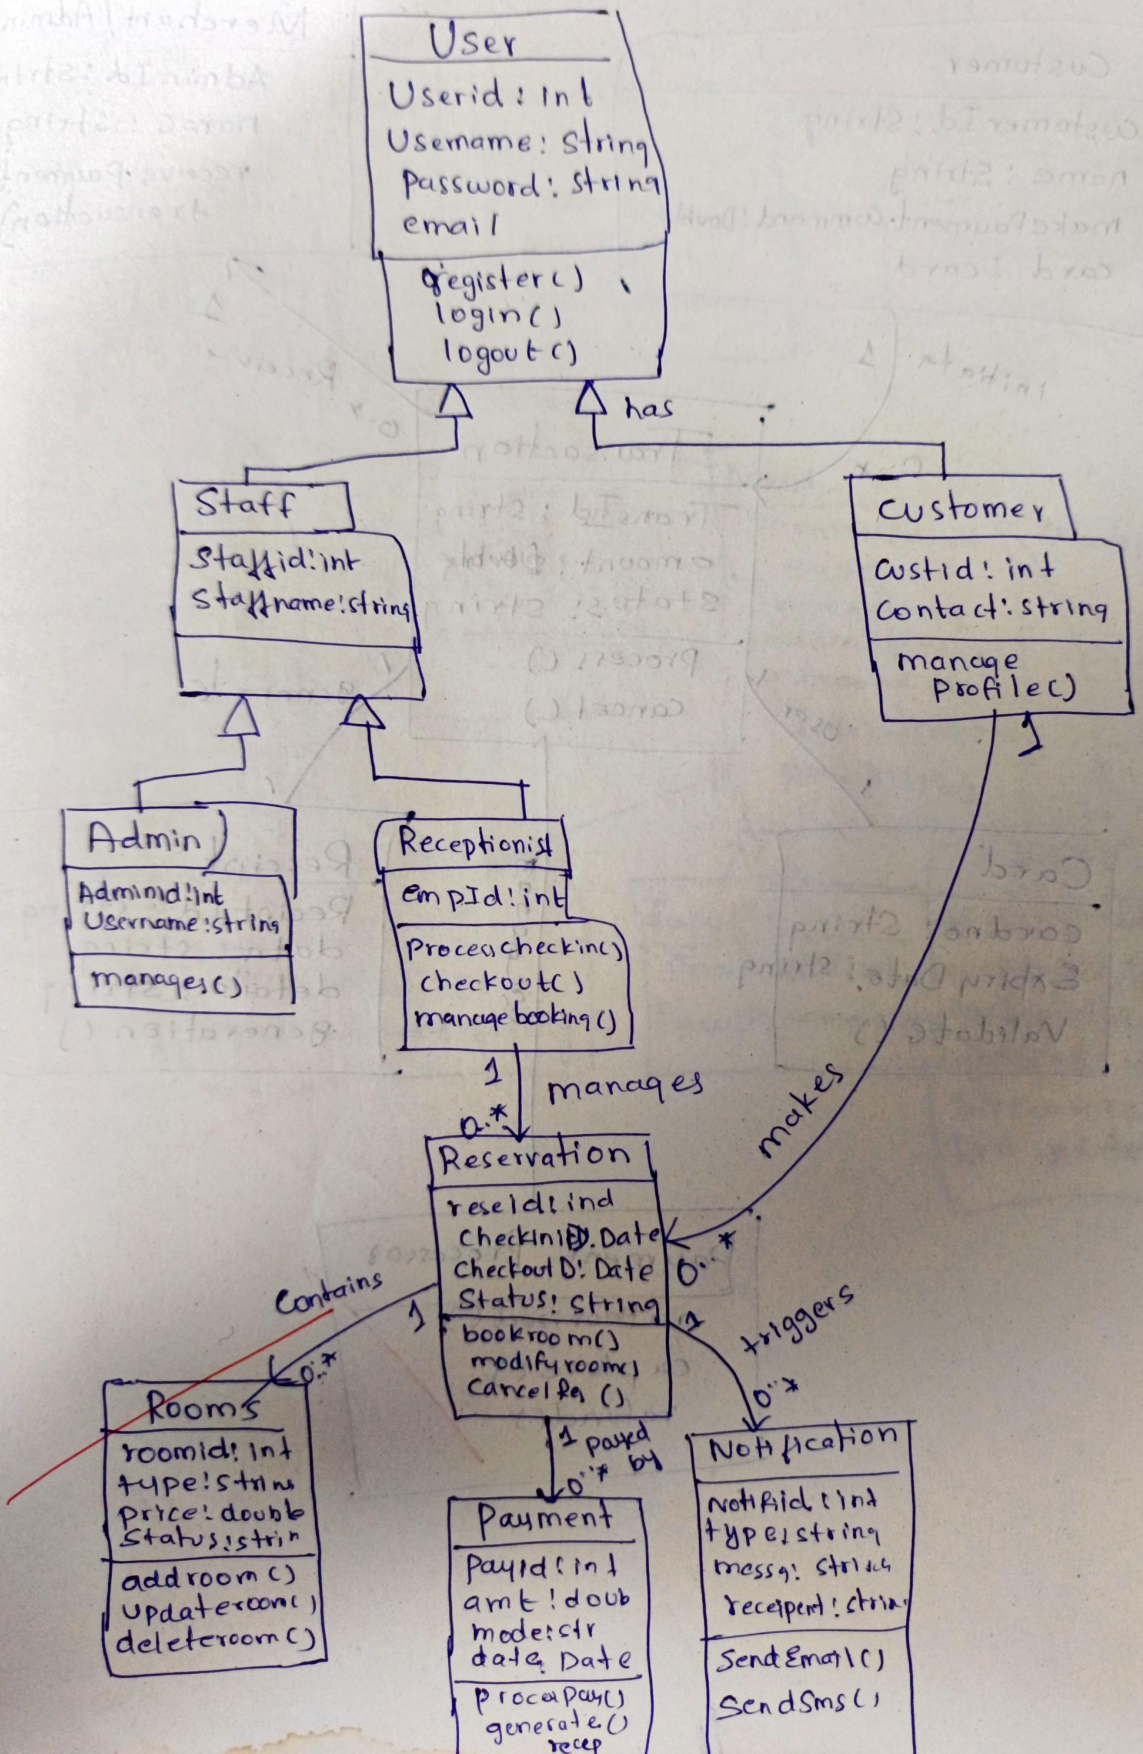 User
Userid: int
Username: String
Password: string
email
register()
login()
logout()
has
Staff
Staffid: int
Staffname: string
Customer
custid: int
contact: string
manage
Profile()
1
Admin
Adminid: int
Username: string
manages()
Receptionist
empId: int
Processcheckin()
checkout()
managebooking()
1
manages
0..*
makes
0..*
Reservation
reseId: ind
CheckinD: Date
CheckoutD: Date
Status: string
bookroom()
modifyroom()
Contains
1
0..*
1
triggers
0..*
Rooms
roomid: int
price: double
addroom()
Updateroom()
deleteroom()
1
by
0..*
Payment
PayId: int
amt: doub
mode: str
date: Date
generate()
recep
Notification
type: string
SendEmail()
SendSms()